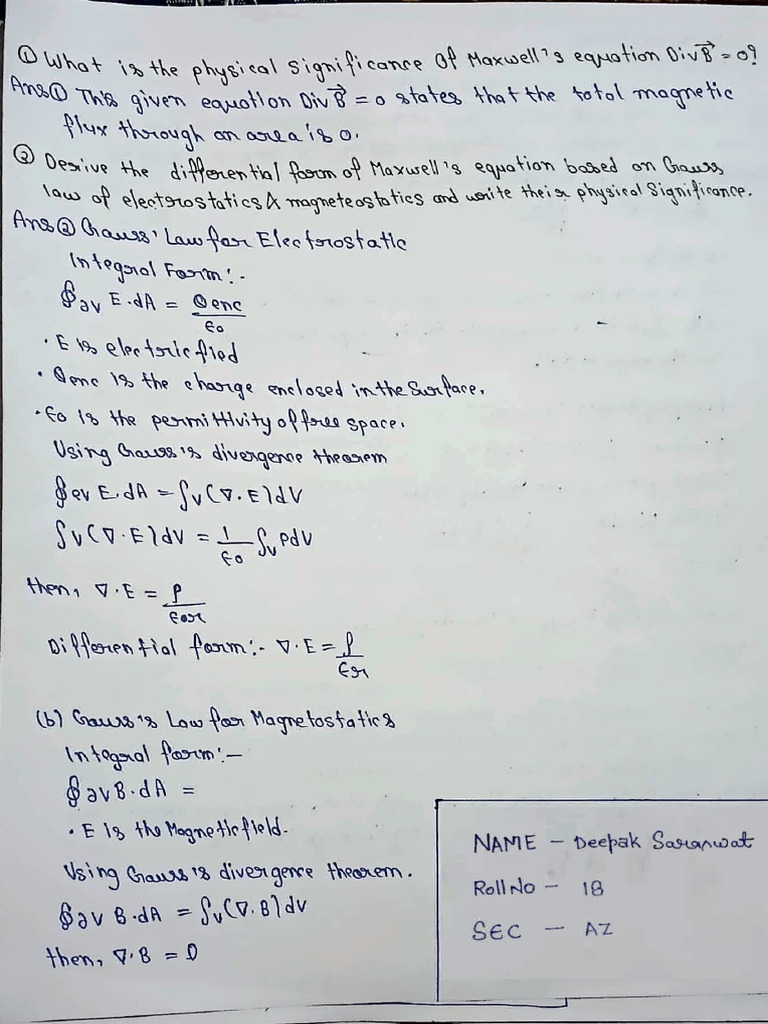 ① What is the physical significance of Maxwell's equation Div B⃗ = 0?
Ans① This given equation Div B⃗ = 0 states that the total magnetic
flux through an area is 0.
② Derive the differential form of Maxwell's equation based on Gauss
law of electrostatics & magneteostatics and write their physical significance.
Ans② Gauss' Law for Electrostatic
Integral Form:-
∮∂v E.dA = Qenc
ε0
• E is electric fied
• Qenc is the charge enclosed in the surface.
• ε0 is the permittivity of free space.
Using Gauss's divergence theorem
∮ev E.dA = ∫v(∇.E)dV
∫v(∇.E)dv = 1/ε0 ∫v ρdv
then, ∇.E = ρ
ε0r
Differential form:- ∇.E = ρ
εr
(b) Gauss's Law for Magnetostatics
Integral form:-
∮∂v B.dA =
• E is the Magnetic field.
Using Gauss's divergence theorem.
∮∂v B.dA = ∫v(∇.B)dv
then, ∇.B = 0
NAME - Deepak Saraswat
Roll No - 18
SEC - AZ